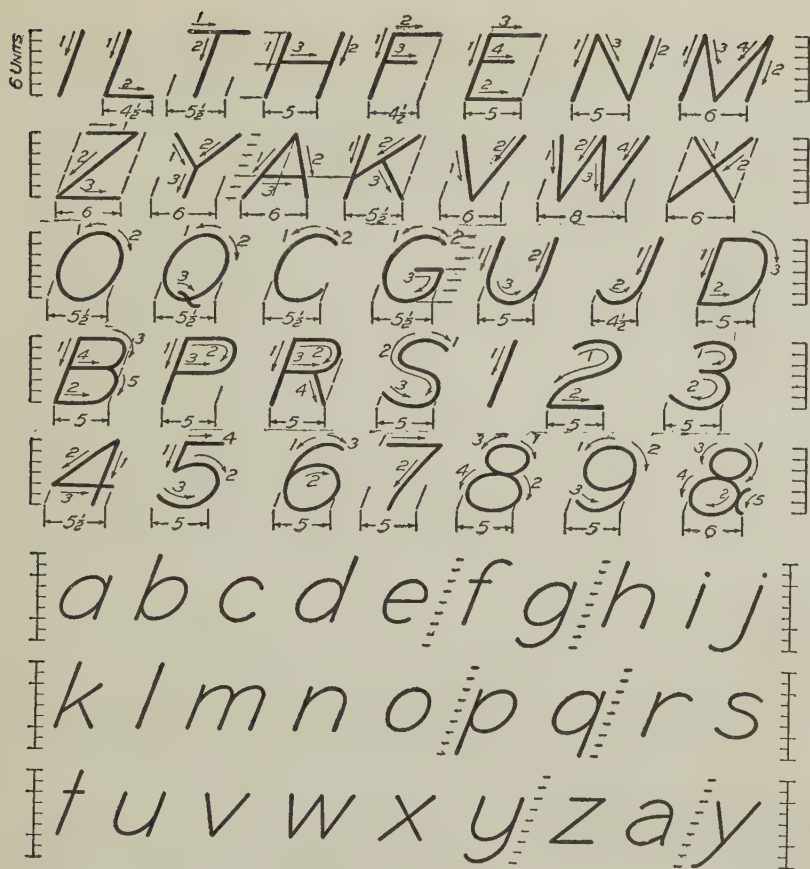 6 UNITS
I L T H F E N M
4½ 5½ 5 4½ 5 5 6
Z Y A K V W X
6 6 6 5½ 6 8 6
O Q C G U J D
5½ 5½ 5½ 5½ 5 4½ 5
B P R S 1 2 3
5 5 5 5 5 5
4 5 6 7 8 9 &
5½ 5 5 5 5 5 6
a b c d e f g h i j
k l m n o p q r s
t u v w x y z a y